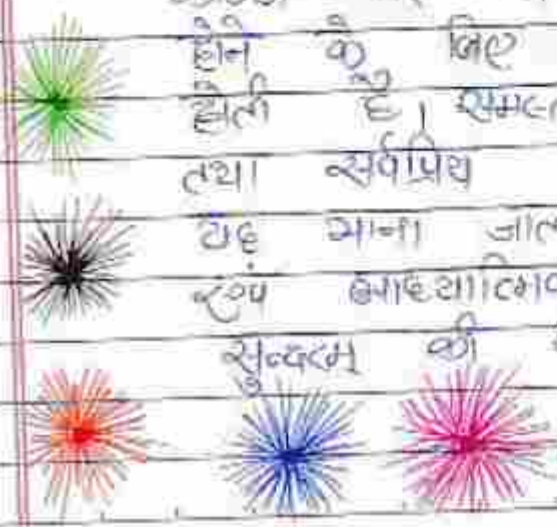 होने के लिए
होली है। समस्त
तथा सर्वप्रिय
यह माना जात
रूप आध्यात्मिक
सुन्दरतम् की